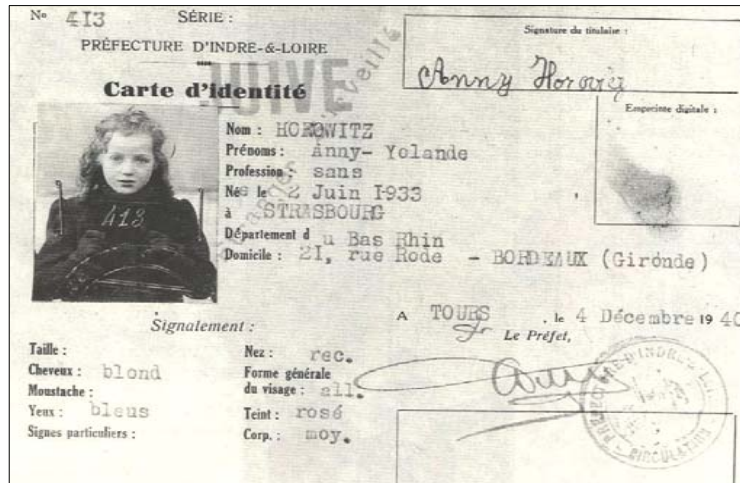 No 413 SÉRIE :
PRÉFECTURE D'INDRE-&-LOIRE
JUIVE
Carte d'identité
Signature du titulaire :
Anny Horovitz
Empreinte digitale :
413
Nom : HOROWITZ
Prénoms : Anny- Yolande
Profession : sans
Née le 2 Juin I933
à STRASBOURG
Département d u Bas Rhin
Domicile : 2I, rue Rode - BORDEAUX (Gironde)
A TOURS , le 4 Décembre 1940
Le Préfet,
Signalement :
Taille :
Cheveux : blond
Moustache :
Yeux : bleus
Signes particuliers :
Nez : rec.
Forme générale
du visage : all.
Teint : rosé
Corp. : moy.
PRÉFECTURE D'INDRE & L
CIRCULATION